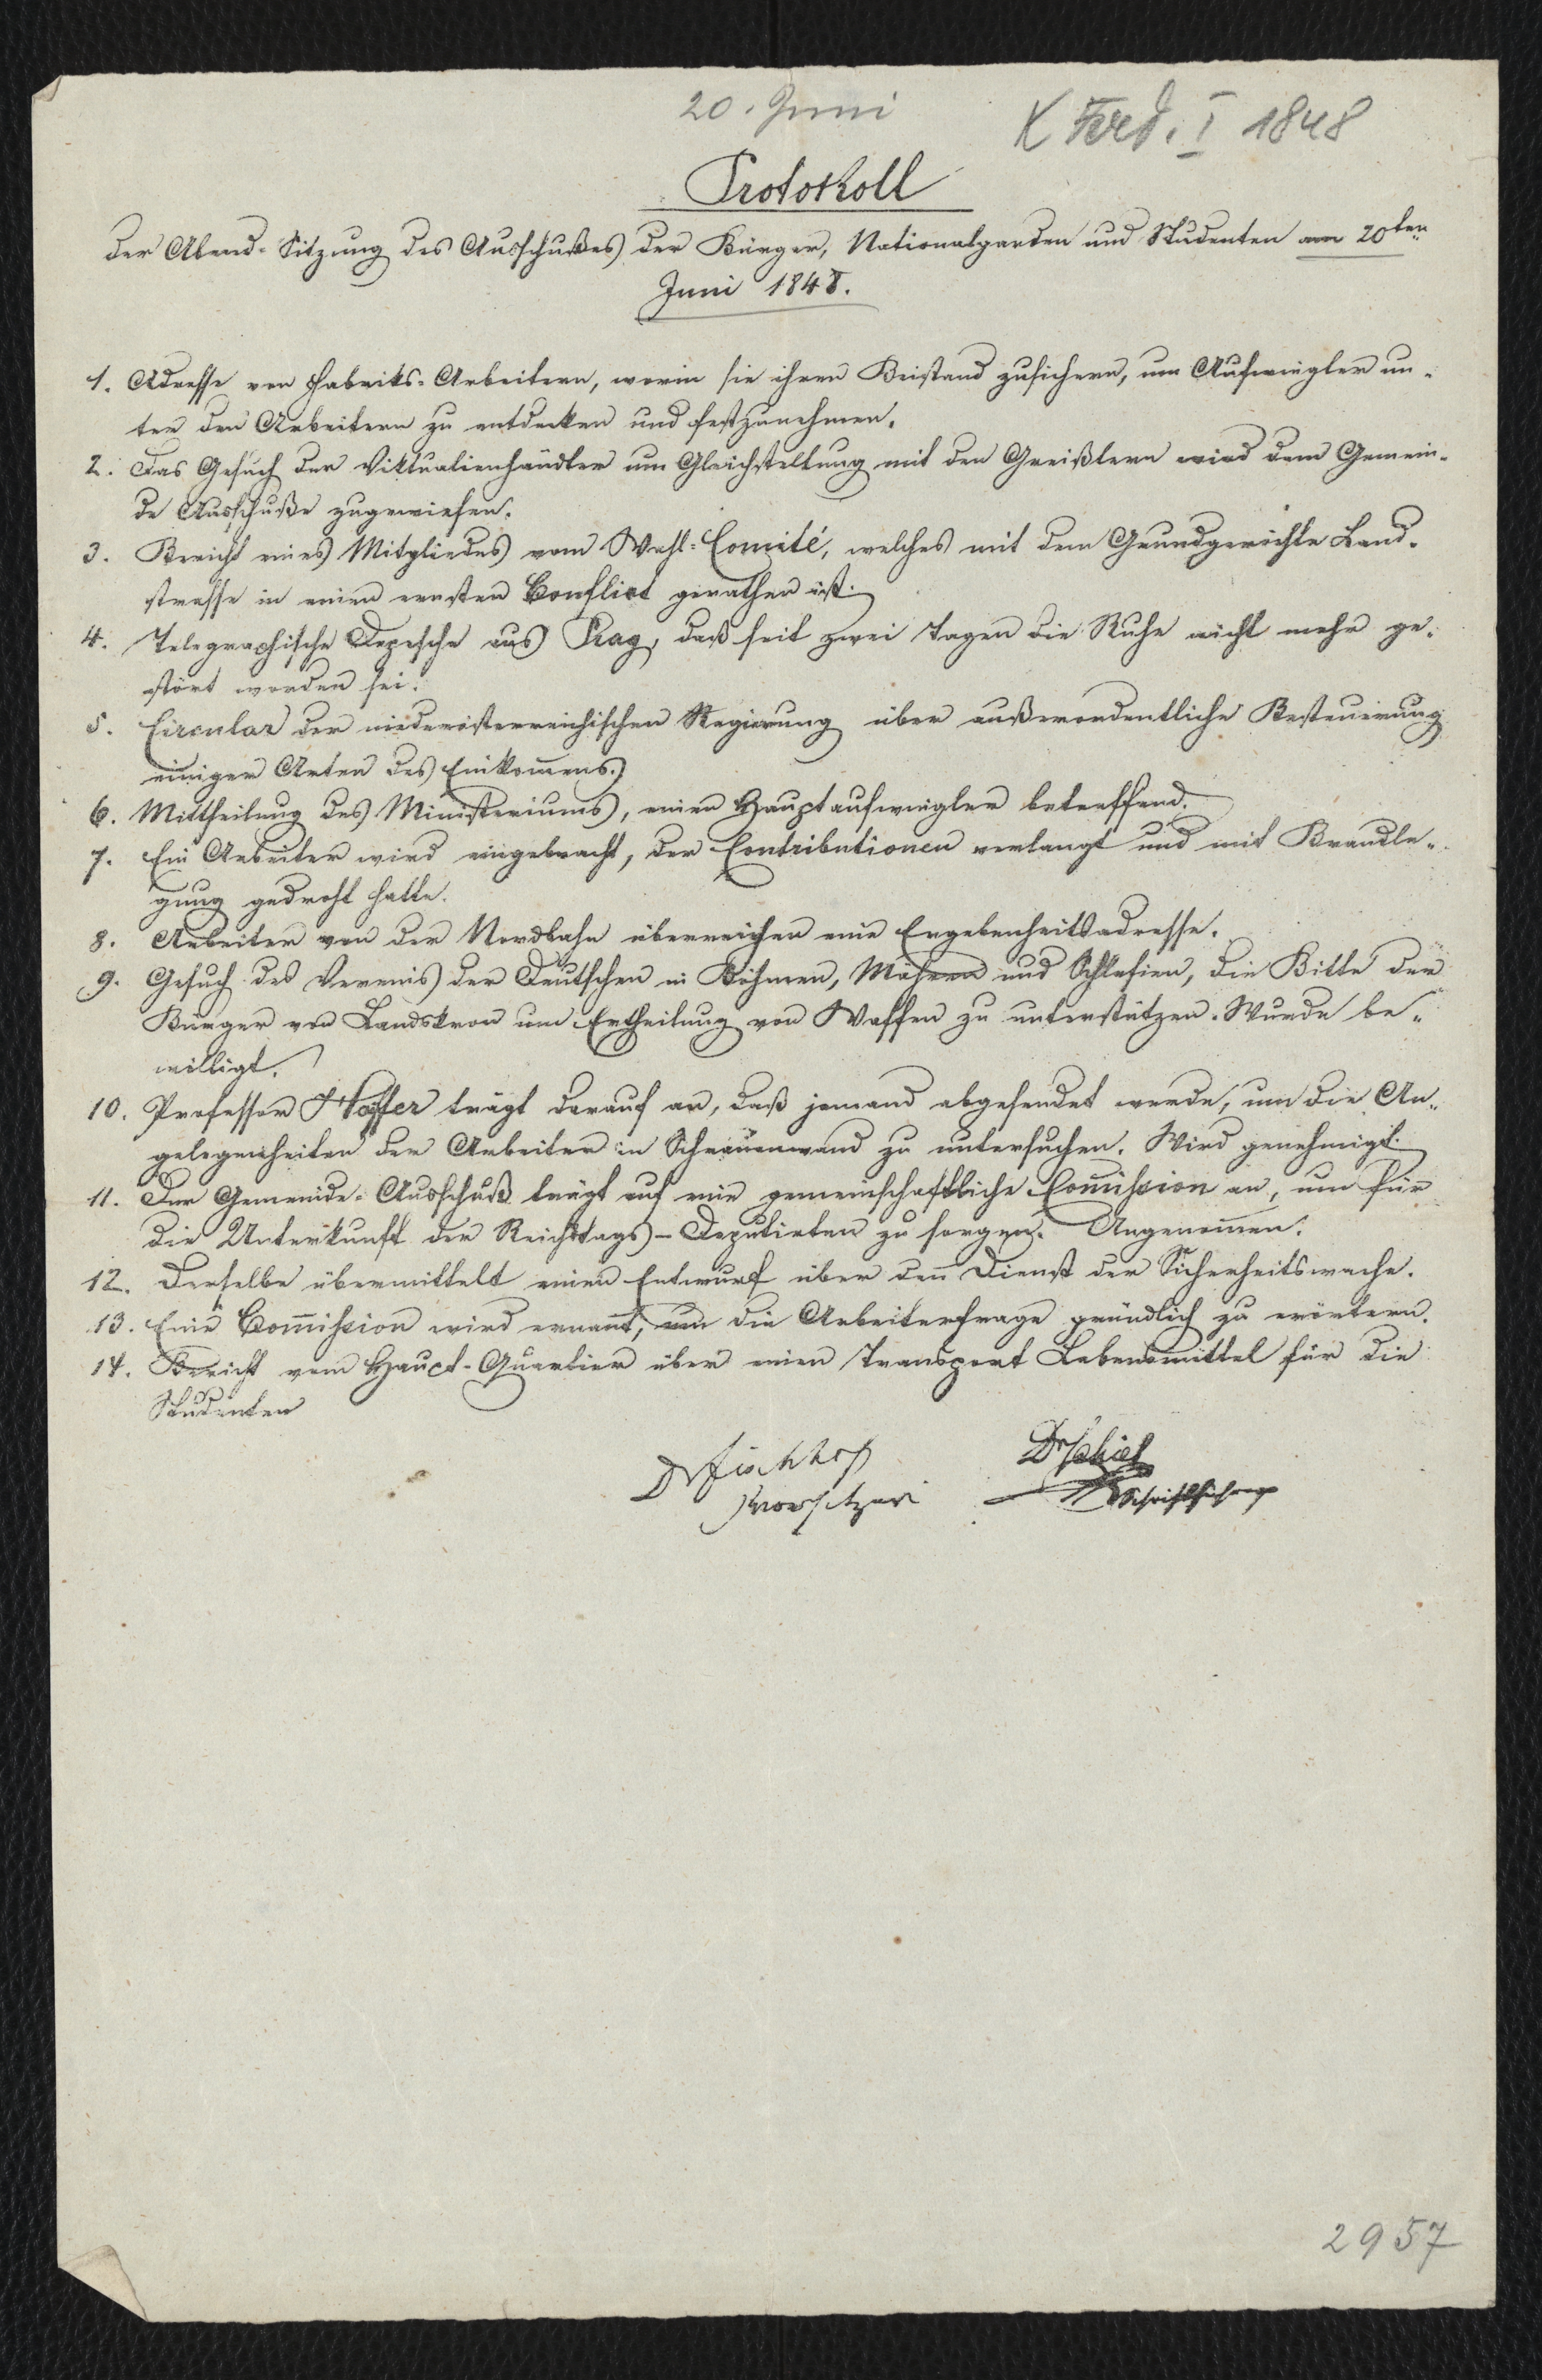 20. Juni
K Ferd. I 1848
Protokoll
der Abend-Sitzung des Ausschußes der Bürger, Nationalgarden und Studenten am 20ten
Juni 1848.
1. Adresse von Fabriks-Arbeitern, worin sie ihren Beistand zusichern, um Aufwiegler un-
ter den Arbeitern zu entdecken und festzunehmen.
2. Das Gesuch der Viktualienhändler um Gleichstellung mit den Greißlern wird dem Gemein-
de Ausschuße zugewiesen.
3. Bericht eines Mitgliedes vom Wahl-Comité, welches mit dem Grundgerichte Land-
strasse in einen ernsten Conflict gerathen ist.
4. Telegraphische Depesche aus Prag, daß seit zwei Tagen die Ruhe nicht mehr ge-
stört worden sei.
5. Circular der niederösterreichischen Regierung über außerordentliche Besteuerung
einiger Arten des Einkom̅ens.
6. Mittheilung des Ministeriums, einen Hauptaufwiegler betreffend.
7. Ein Arbeiter wird eingebracht, der Contributionen verlangt und mit Brandle-
gung gedroht hatte.
8. Arbeiter von der Nordbahn überreichen eine Ergebenheitsadresse.
9. Gesuch des Vereins der Deutschen in Böhmen, Mähren und Schlesien, die Bitte der
Bürger von Landskron um Ertheilung von Waffen zu unterstützen. Wurde be-
willigt.
10. Professor trägt darauf an, daß jemand abgesendet werde, um die An-
gelegenheiten der Arbeiter in zu untersuchen. Wird genehmigt.
11. Der Gemeinde-Ausschuß trägt auf eine gemeinschaftliche Com̅ission an, um für
die Unterkunft der Reichstags-Deputirten zu sorgen. Angenom̅en.
12. Derselbe übermittelt einen Entwurf über den Dienst der Sicherheitswache.
13. Eine Com̅ission wird ernan̅t, um die Arbeiterfrage gründlich zu erörtern.
14. Bericht vom Haupt-Quartier über einen Transport Lebensmittel für die
Studenten
Dr Fischhof
Vorsitzer
Dr
Schriftführer
2957